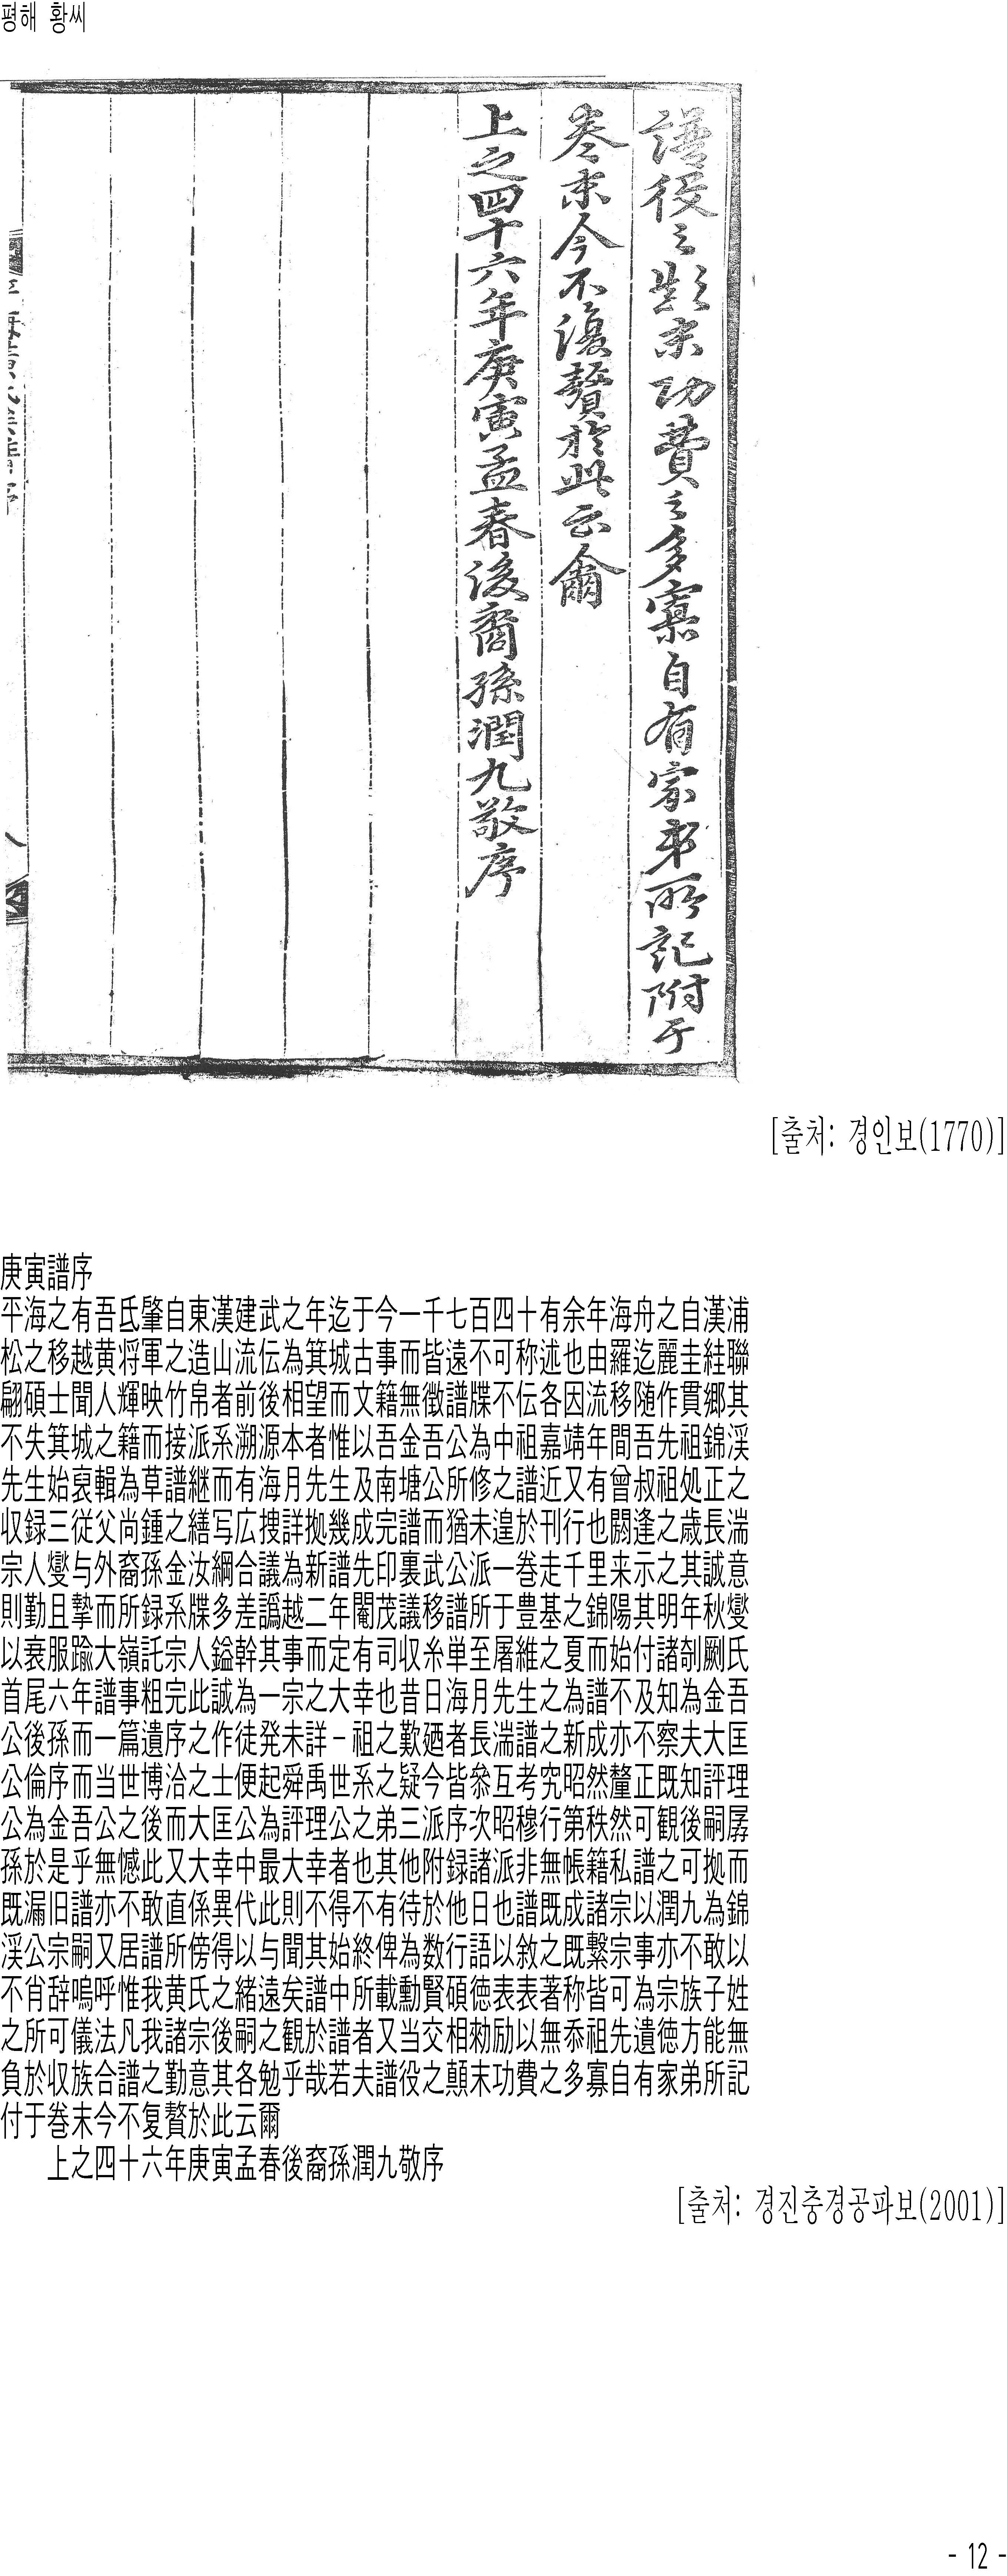 평해 황씨
譜役之顚末功費之多寡自有家弟所記附于
卷末今不復贅於此云爾
上之四十六年庚寅孟春後裔孫潤九敬序
[출처: 경인보(1770)]
庚寅譜序
平海之有吾氏肇自東漢建武之年迄于今一千七百四十有余年海舟之自漢浦
松之移越黄将軍之造山流伝為箕城古事而皆遠不可称述也由羅迄麗圭絓聯
翩碩士聞人輝映竹帛者前後相望而文籍無徴譜牒不伝各因流移随作貫郷其
不失箕城之籍而接派系溯源本者惟以吾金吾公為中祖嘉靖年間吾先祖錦渓
先生始裒輯為草譜継而有海月先生及南塘公所修之譜近又有曾叔祖処正之
収録三従父尚鍾之繕写広捜詳拠幾成完譜而猶未遑於刊行也閼逢之歳長湍
宗人燮与外裔孫金汝綱合議為新譜先印裏武公派一巻走千里来示之其誠意
則勤且摯而所録系牒多差譌越二年閹茂議移譜所于豊基之錦陽其明年秋燮
以衰服踰大嶺託宗人鎰幹其事而定有司収糸単至屠維之夏而始付諸剞劂氏
首尾六年譜事粗完此誠為一宗之大幸也昔日海月先生之為譜不及知為金吾
公後孫而一篇遺序之作徒発未詳－祖之歎廼者長湍譜之新成亦不察夫大匡
公倫序而当世博洽之士便起舜禹世系之疑今皆參互考究昭然釐正既知評理
公為金吾公之後而大匡公為評理公之弟三派序次昭穆行第秩然可観後嗣孱
孫於是乎無憾此又大幸中最大幸者也其他附録諸派非無帳籍私譜之可拠而
既漏旧譜亦不敢直係異代此則不得不有待於他日也譜既成諸宗以潤九為錦
渓公宗嗣又居譜所傍得以与聞其始終俾為数行語以敘之既繋宗事亦不敢以
不肖辞嗚呼惟我黄氏之緒遠矣譜中所載勳賢碩徳表表著称皆可為宗族子姓
之所可儀法凡我諸宗後嗣之観於譜者又当交相勑励以無忝祖先遺徳方能無
負於収族合譜之勤意其各勉乎哉若夫譜役之顛末功費之多寡自有家弟所記
付于巻末今不复贅於此云爾
上之四十六年庚寅孟春後裔孫潤九敬序
[출처: 경진충경공파보(2001)]
- 12 -